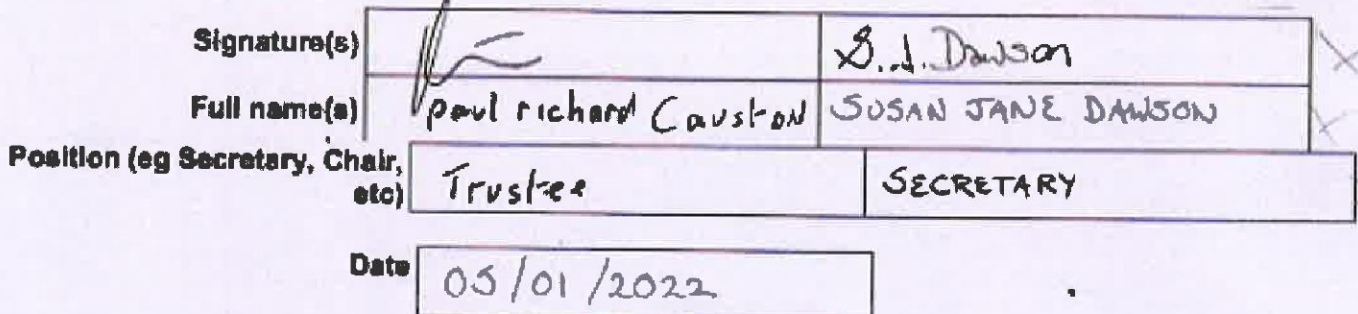 Signature(s) S.J. Dawson
Full name(s) paul richard Causton SUSAN JANE DAWSON
Position (eg Secretary, Chair, etc) Trustee SECRETARY
Date 05/01/2022